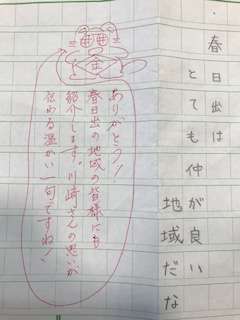 春日出は
とても仲が良い
地域だな
金
ありがとう！
春日出の地域の皆様にも
紹介します。川崎さんの思いが
伝わる温かい一句ですね！